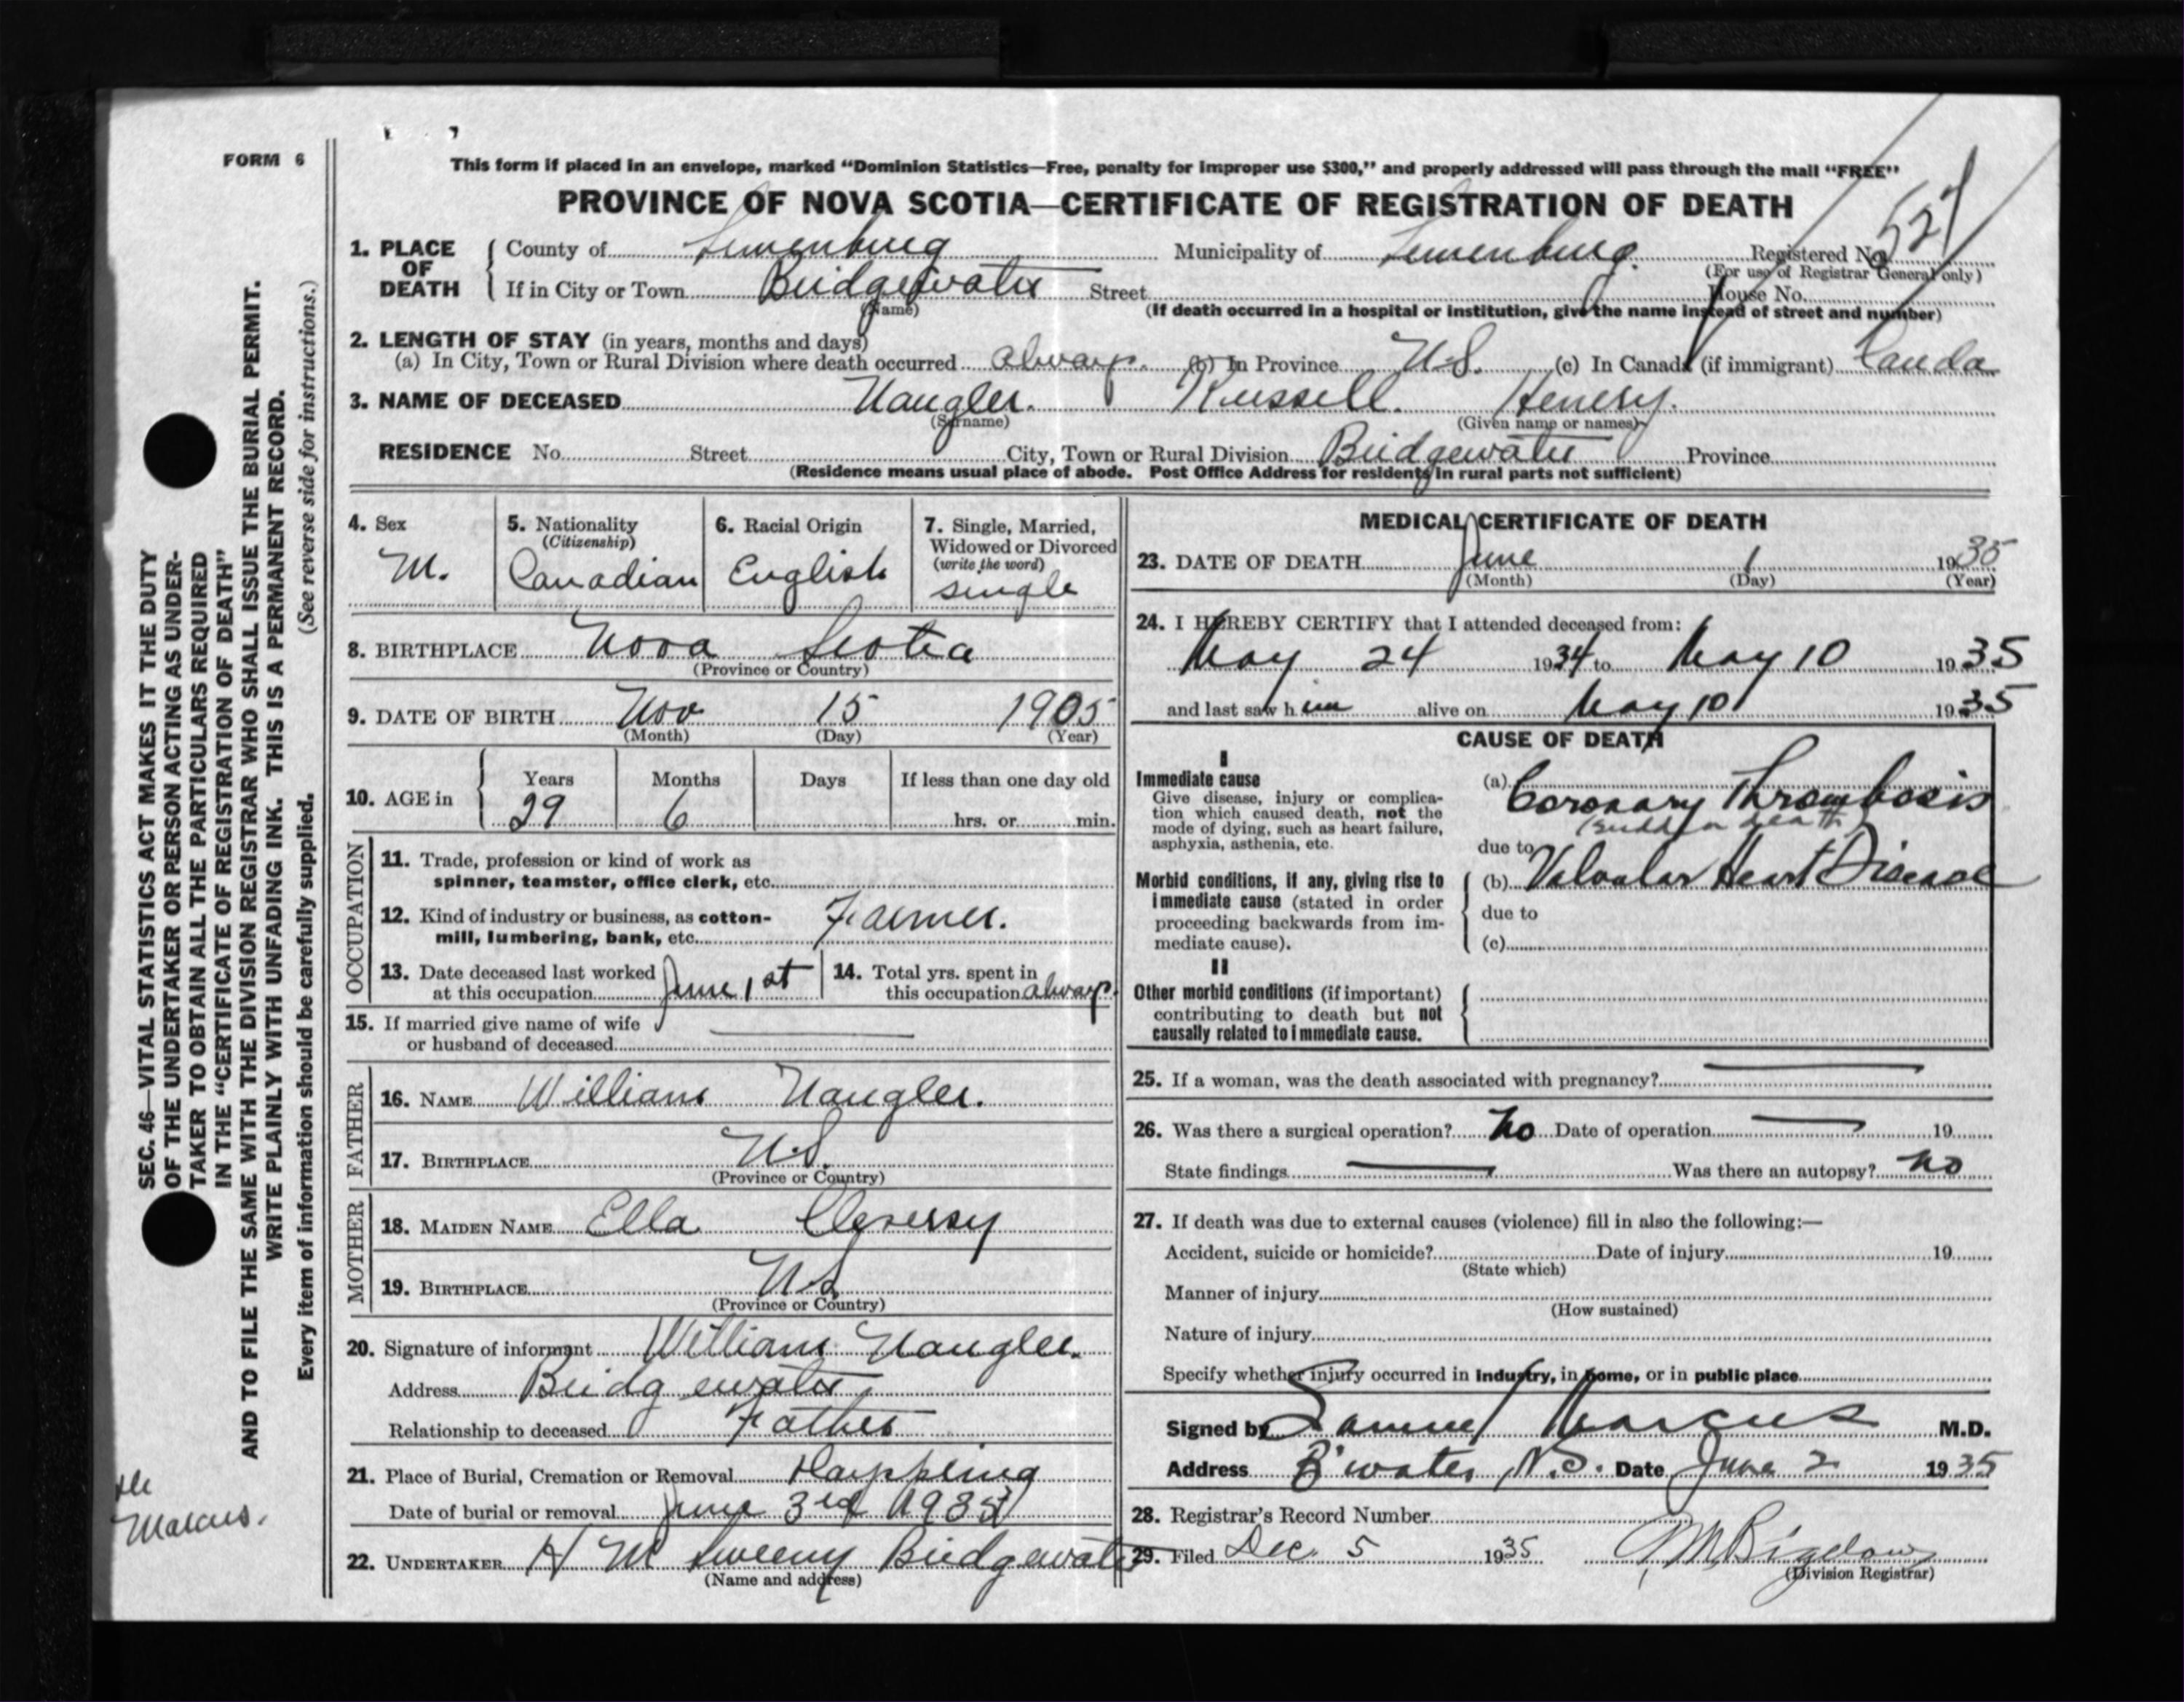 FORM 6
This form if placed in an envelope, marked “Dominion Statistics—Free, penalty for improper use $300,” and properly addressed will pass through the mail “FREE”
PROVINCE OF NOVA SCOTIA—CERTIFICATE OF REGISTRATION OF DEATH
1. PLACE OF DEATH County of Lunenburg Municipality of Lunenburg. Registered No. 527
(For use of Registrar General only)
If in City or Town Bridgewater Street House No.
(Name) (If death occurred in a hospital or institution, give the name instead of street and number)
2. LENGTH OF STAY (in years, months and days)
(a) In City, Town or Rural Division where death occurred always. (b) In Province N.S. (c) In Canada (if immigrant) Canda
3. NAME OF DECEASED Naugler. Russell. Henery.
(Surname) (Given name or names)
RESIDENCE No. Street City, Town or Rural Division Bridgewater Province
(Residence means usual place of abode. Post Office Address for residents in rural parts not sufficient)
4. Sex M.
5. Nationality (Citizenship) Canadian
6. Racial Origin English
7. Single, Married, Widowed or Divorced (write the word) single
8. BIRTHPLACE Nova Scotia
(Province or Country)
9. DATE OF BIRTH Nov 15 1905
(Month) (Day) (Year)
10. AGE in Years 29 Months 6 Days If less than one day old hrs. or min.
OCCUPATION
11. Trade, profession or kind of work as
spinner, teamster, office clerk, etc.
12. Kind of industry or business, as cotton-
mill, lumbering, bank, etc. Farmer.
13. Date deceased last worked
at this occupation June 1st
14. Total yrs. spent in
this occupation always.
15. If married give name of wife
or husband of deceased —
FATHER
16. NAME William Naugler.
17. BIRTHPLACE N.S.
(Province or Country)
MOTHER
18. MAIDEN NAME Ella
19. BIRTHPLACE N.S
(Province or Country)
20. Signature of informant William Naugler.
Address Bridgewater
Relationship to deceased Father
21. Place of Burial, Cremation or Removal
Date of burial or removal June 3rd 1935
22. UNDERTAKER H M Sweeny Bridgewater
(Name and address)
MEDICAL CERTIFICATE OF DEATH
23. DATE OF DEATH June 1 1935
(Month) (Day) (Year)
24. I HEREBY CERTIFY that I attended deceased from:
May 24 1934 to May 10 1935
and last saw him alive on May 10 1935
CAUSE OF DEATH
I
Immediate cause
Give disease, injury or complica-
tion which caused death, not the
mode of dying, such as heart failure,
asphyxia, asthenia, etc.
(a) Coronary Thrombosis
(sudden death)
due to
Morbid conditions, if any, giving rise to
immediate cause (stated in order
proceeding backwards from im-
mediate cause).
(b) Valvular Heart Disease
due to
(c)
II
Other morbid conditions (if important)
contributing to death but not
causally related to immediate cause.
25. If a woman, was the death associated with pregnancy? —
26. Was there a surgical operation? No Date of operation — 19
State findings — Was there an autopsy? No
27. If death was due to external causes (violence) fill in also the following:—
Accident, suicide or homicide? Date of injury 19
(State which)
Manner of injury
(How sustained)
Nature of injury
Specify whether injury occurred in industry, in home, or in public place
Signed by Samuel Marcus M.D.
Address B'water, N.S. Date June 2 1935
28. Registrar's Record Number
29. Filed Dec. 5 1935 Bigelow
(Division Registrar)
SEC. 46—VITAL STATISTICS ACT MAKES IT THE DUTY
OF THE UNDERTAKER OR PERSON ACTING AS UNDER-
TAKER TO OBTAIN ALL THE PARTICULARS REQUIRED
IN THE “CERTIFICATE OF REGISTRATION OF DEATH”
AND TO FILE THE SAME WITH THE DIVISION REGISTRAR WHO SHALL ISSUE THE BURIAL PERMIT.
WRITE PLAINLY WITH UNFADING INK. THIS IS A PERMANENT RECORD.
Every item of information should be carefully supplied. (See reverse side for instructions.)
Marcus.